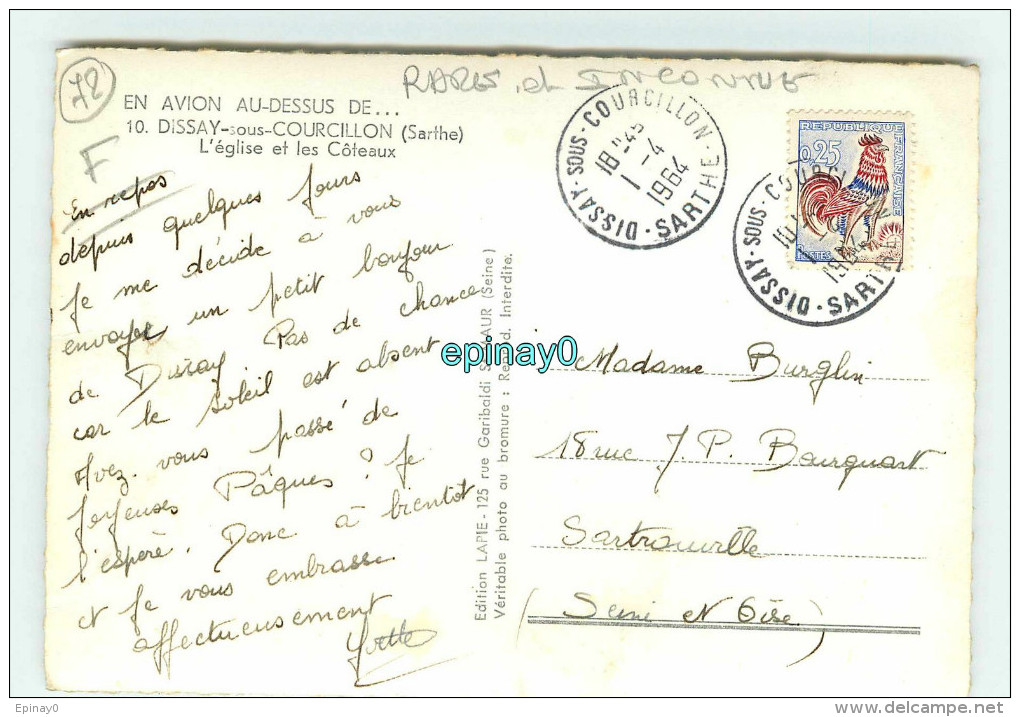 72
F
RARE et INCONNUE
EN AVION AU-DESSUS DE...
10. DISSAY-sous-COURCILLON (Sarthe)
L'église et les Côteaux
En repos
depuis quelques jours
je me décide à vous
envoyer un petit bonjour
de Dissay Pas de chance
car le soleil est absent
Avez-vous passé de
Joyeuses Pâques ? Je
l'espère. Donc à bientôt
et je vous embrasse
affectueusement
Yvette
Edition LAPIE - 125 rue Garibaldi St-MAUR (Seine)
Véritable photo au bromure : Reprod. Interdite.
DISSAY-SOUS-COURCILLON - SARTHE
18H45
1-4
1964
REPUBLIQUE FRANÇAISE
0,25
POSTES
DISSAY-SOUS-COURCILLON - SARTHE
1964
Madame Burglin
18 rue J. P. Bourquart
Sartrouville
(Seine et Oise)
epinay0
Epinay0
www.delcampe.net